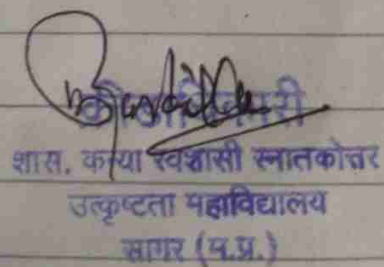 शास. कन्या स्वशासी स्नातकोत्तर
उत्कृष्टता महाविद्यालय
सागर (म.प्र.)